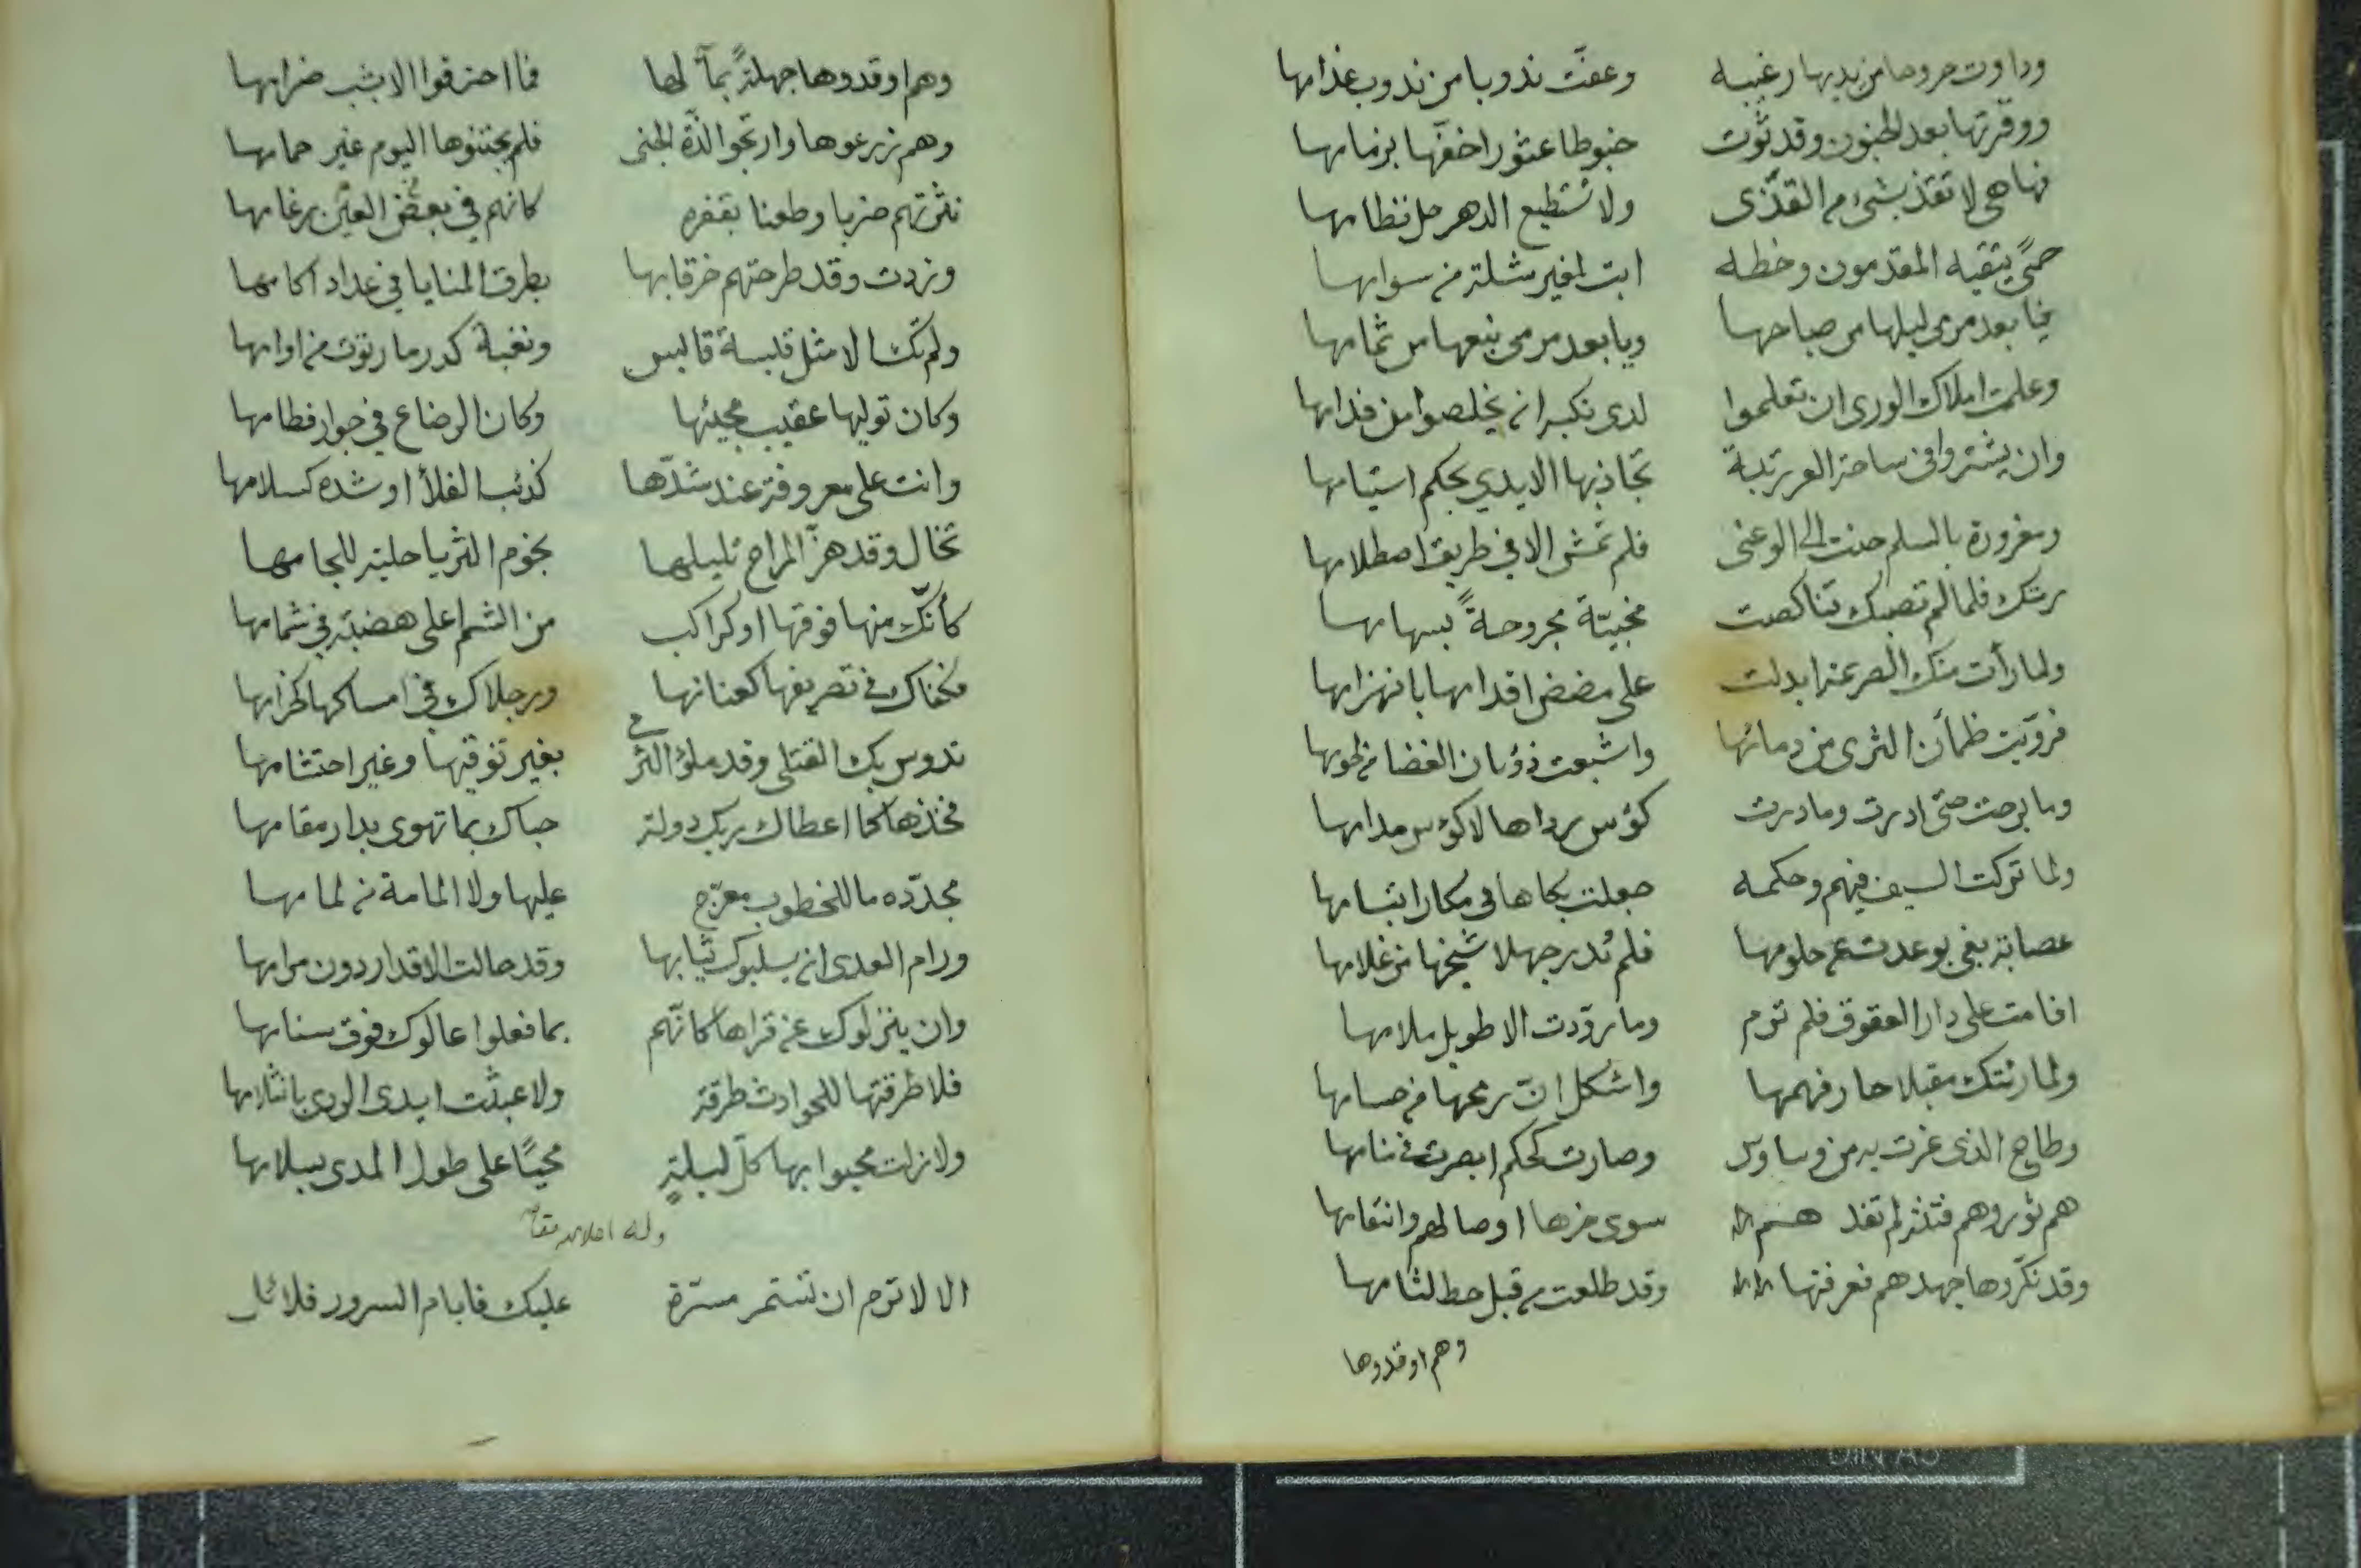 وداوت جروحا من يديها رغيبه وعفت ندوبا من ندوب عذامها
ووقرتها بعد الجنون وقد ثوت خبوطا عثورا خفها بزمامها
فها هي لا تقذ بشيء من القذى ولا تستطيع الدهر حل نظامها
حمىً يتقيه المقدمون وخطه ابت لمغير مثلة من سوامها
فيا بعد مرمى ليلها من صباحها ويا بعد مرمى نبعها من ثمامها
وعلمت املاك الورى ان تعلموا لدى نكبر ان يخلصوا من فدامها
وان يشتروا في ساحة العز رتبة تجاذبها الايدي بحكم استيامها
ومغرورة بالسلم حنت الى الوغى فلم تمش الا في طريق اصطلامها
رمتك فلما لم تصبك تناكصت مخيبّة مجروحةً بسهامها
ولما رأت منك الصريمة ابدلت على مضض اقدامها بانهزامها
فروّيت ظمأن الثرى من دمائها واشبعت ذؤبان الغضا من لحومها
وما برحت حتى ادرت وما درت كؤس رداها لا كؤس مدامها
ولما تركت السيف فيهم وحكمه جعلت بكاها في مكان ابتسامها
عصابة بغي بوعدت عن حلومها فلم تُدر جهلا شيخها من غلامها
اقامت على دار العقوق فلم ترم وما زودت الا طويل ملامها
ولما رئتك مقبلا حار فهمها واشكل انّ رمحها من حسامها
وطاح الذى غرت به من وساوس وصارت كحكم ابصرت في منامها
هم ثوروهم فتنة لم تفد هم سوى حزها اوصالهم وانتقامها
وقد نكّروها جهدهم فعرفتها وقد طلعت من قبل حط لثامها
وهم اوقدوها
وهم اوقدوها جهلةً بمآلها فما احترقوا الا بشب ضرامها
وهم زرعوها وارتجوا لذّة الجنى فلم يجتنوها اليوم غير حمامها
نثرتهم ضربا وطعنا بقفره كانهم في بعض رغامها
وزدت وقد طرحتهم خرقا بها بطرق المنايا في عداد اكامها
ولم تك الا مثل قبسة قابس ونغبة كدر ما رتوت من اوامها
وكان توليها عقيب مجيئها وكان الرضاع في جوار فطامها
وانت على معروفة عند شدّها كذئب الفلا او شده كسلامها
تخال وقد هزّ المراح تليلها نجوم الثريا حلية للجامها
كأنّك منها فوقها او كراكب من الشم اعلى هضبة في شمامها
فكفاك في تصريفها كعنانها ورجلاك في امساكها كحزامها
تدوس بك القتلى وقد ملؤ الثرى بغير توقيها وغير احتشامها
فخذها كما اعطاك ربك دولة حباك بما تهوى بدار مقامها
مجدّده ما للخطوب معرّج عليها ولا المامة من لمامها
ورام العدى ان يسلبوك ثيابها وقد حالت الاقدار دون مرامها
وان ينزلوك عن قراها كانّهم بما فعلوا عالوك فوق سنامها
فلا طرقتها للحوادث طرقة ولا عبثت ايدى الورى بانثلامها
ولا زلت محبوا بها كلّ ليلةٍ محيّا على طول المدى بسلامها
وله اعلا الله مقامه
الا لا ترم ان تستمر مسرّة عليك فايام السرور قلائل